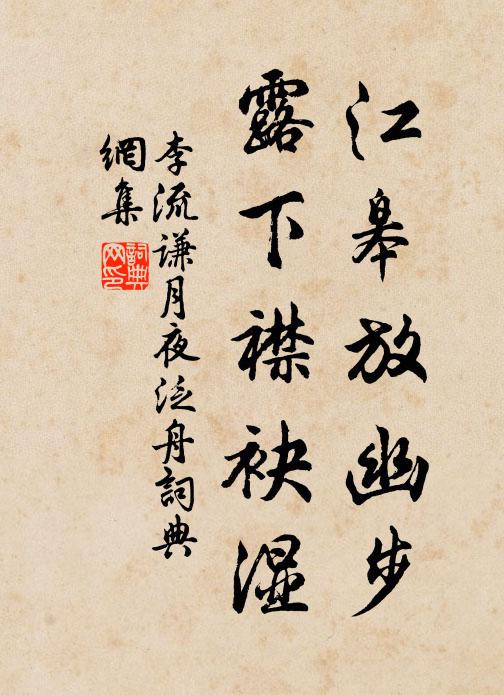 江皋放幽步
露下襟袂湿
李流谦月夜泛舟詞典
網集
詞典
网印